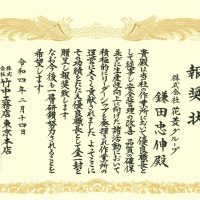 報奨状
株式会社 花菱グループ
鎌田忠伸殿
貴殿は当社の作業所において優良職長と
して従事し安全管理の改善 品質の確保
並びに生産性向上に向けた諸活動において
積極的にリーダーシップを発揮され作業所の
運営に大きく貢献されました よってここに
その功績をたたえ優良職長として金一封を
贈呈し報奨致します
なお今後も一層研鑽努力されることを
希望します
令和四年三月十四日
株式会社 竹中工務店 東京本店